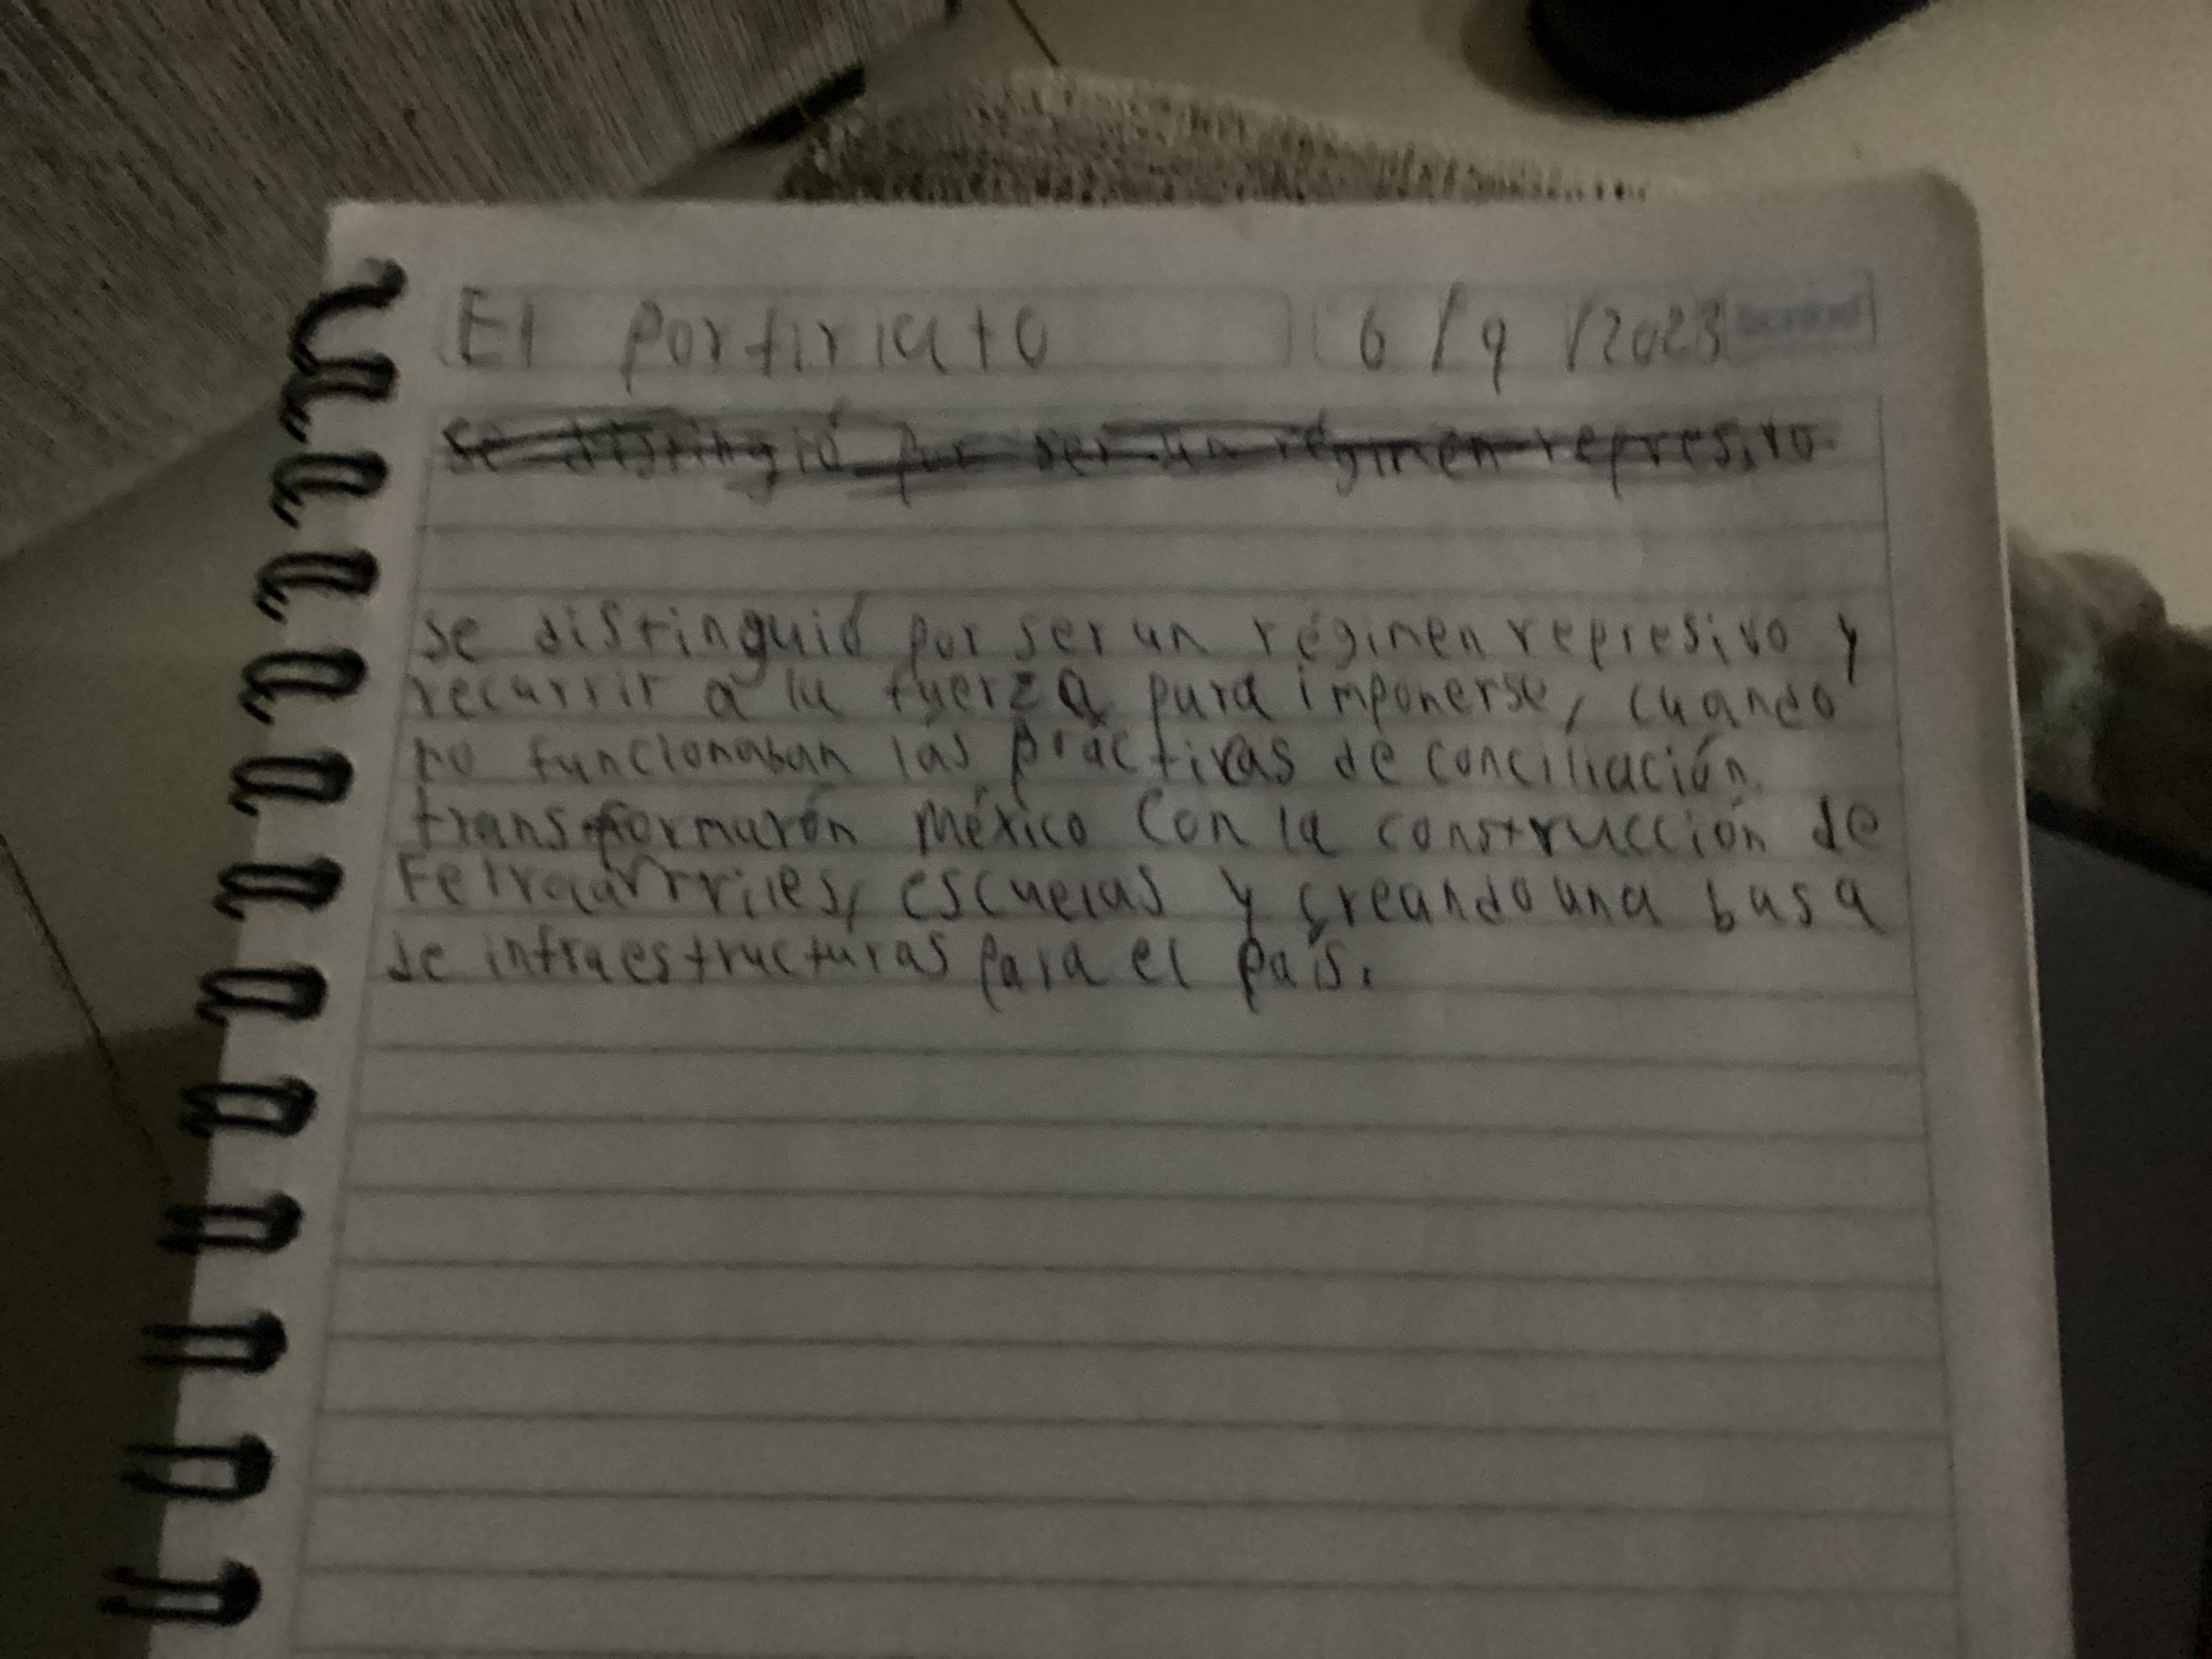 El Porfiriato 6/9/2023
Se distingió por ser un régimen represivo
Se distinguió por ser un régimen represivo y
recurrir a la fuerza para imponerse, cuando
no funcionaban las prácticas de conciliación
transformarón México Con la construcción de
escuelas y creando una basa
de infraestructuras para el país.